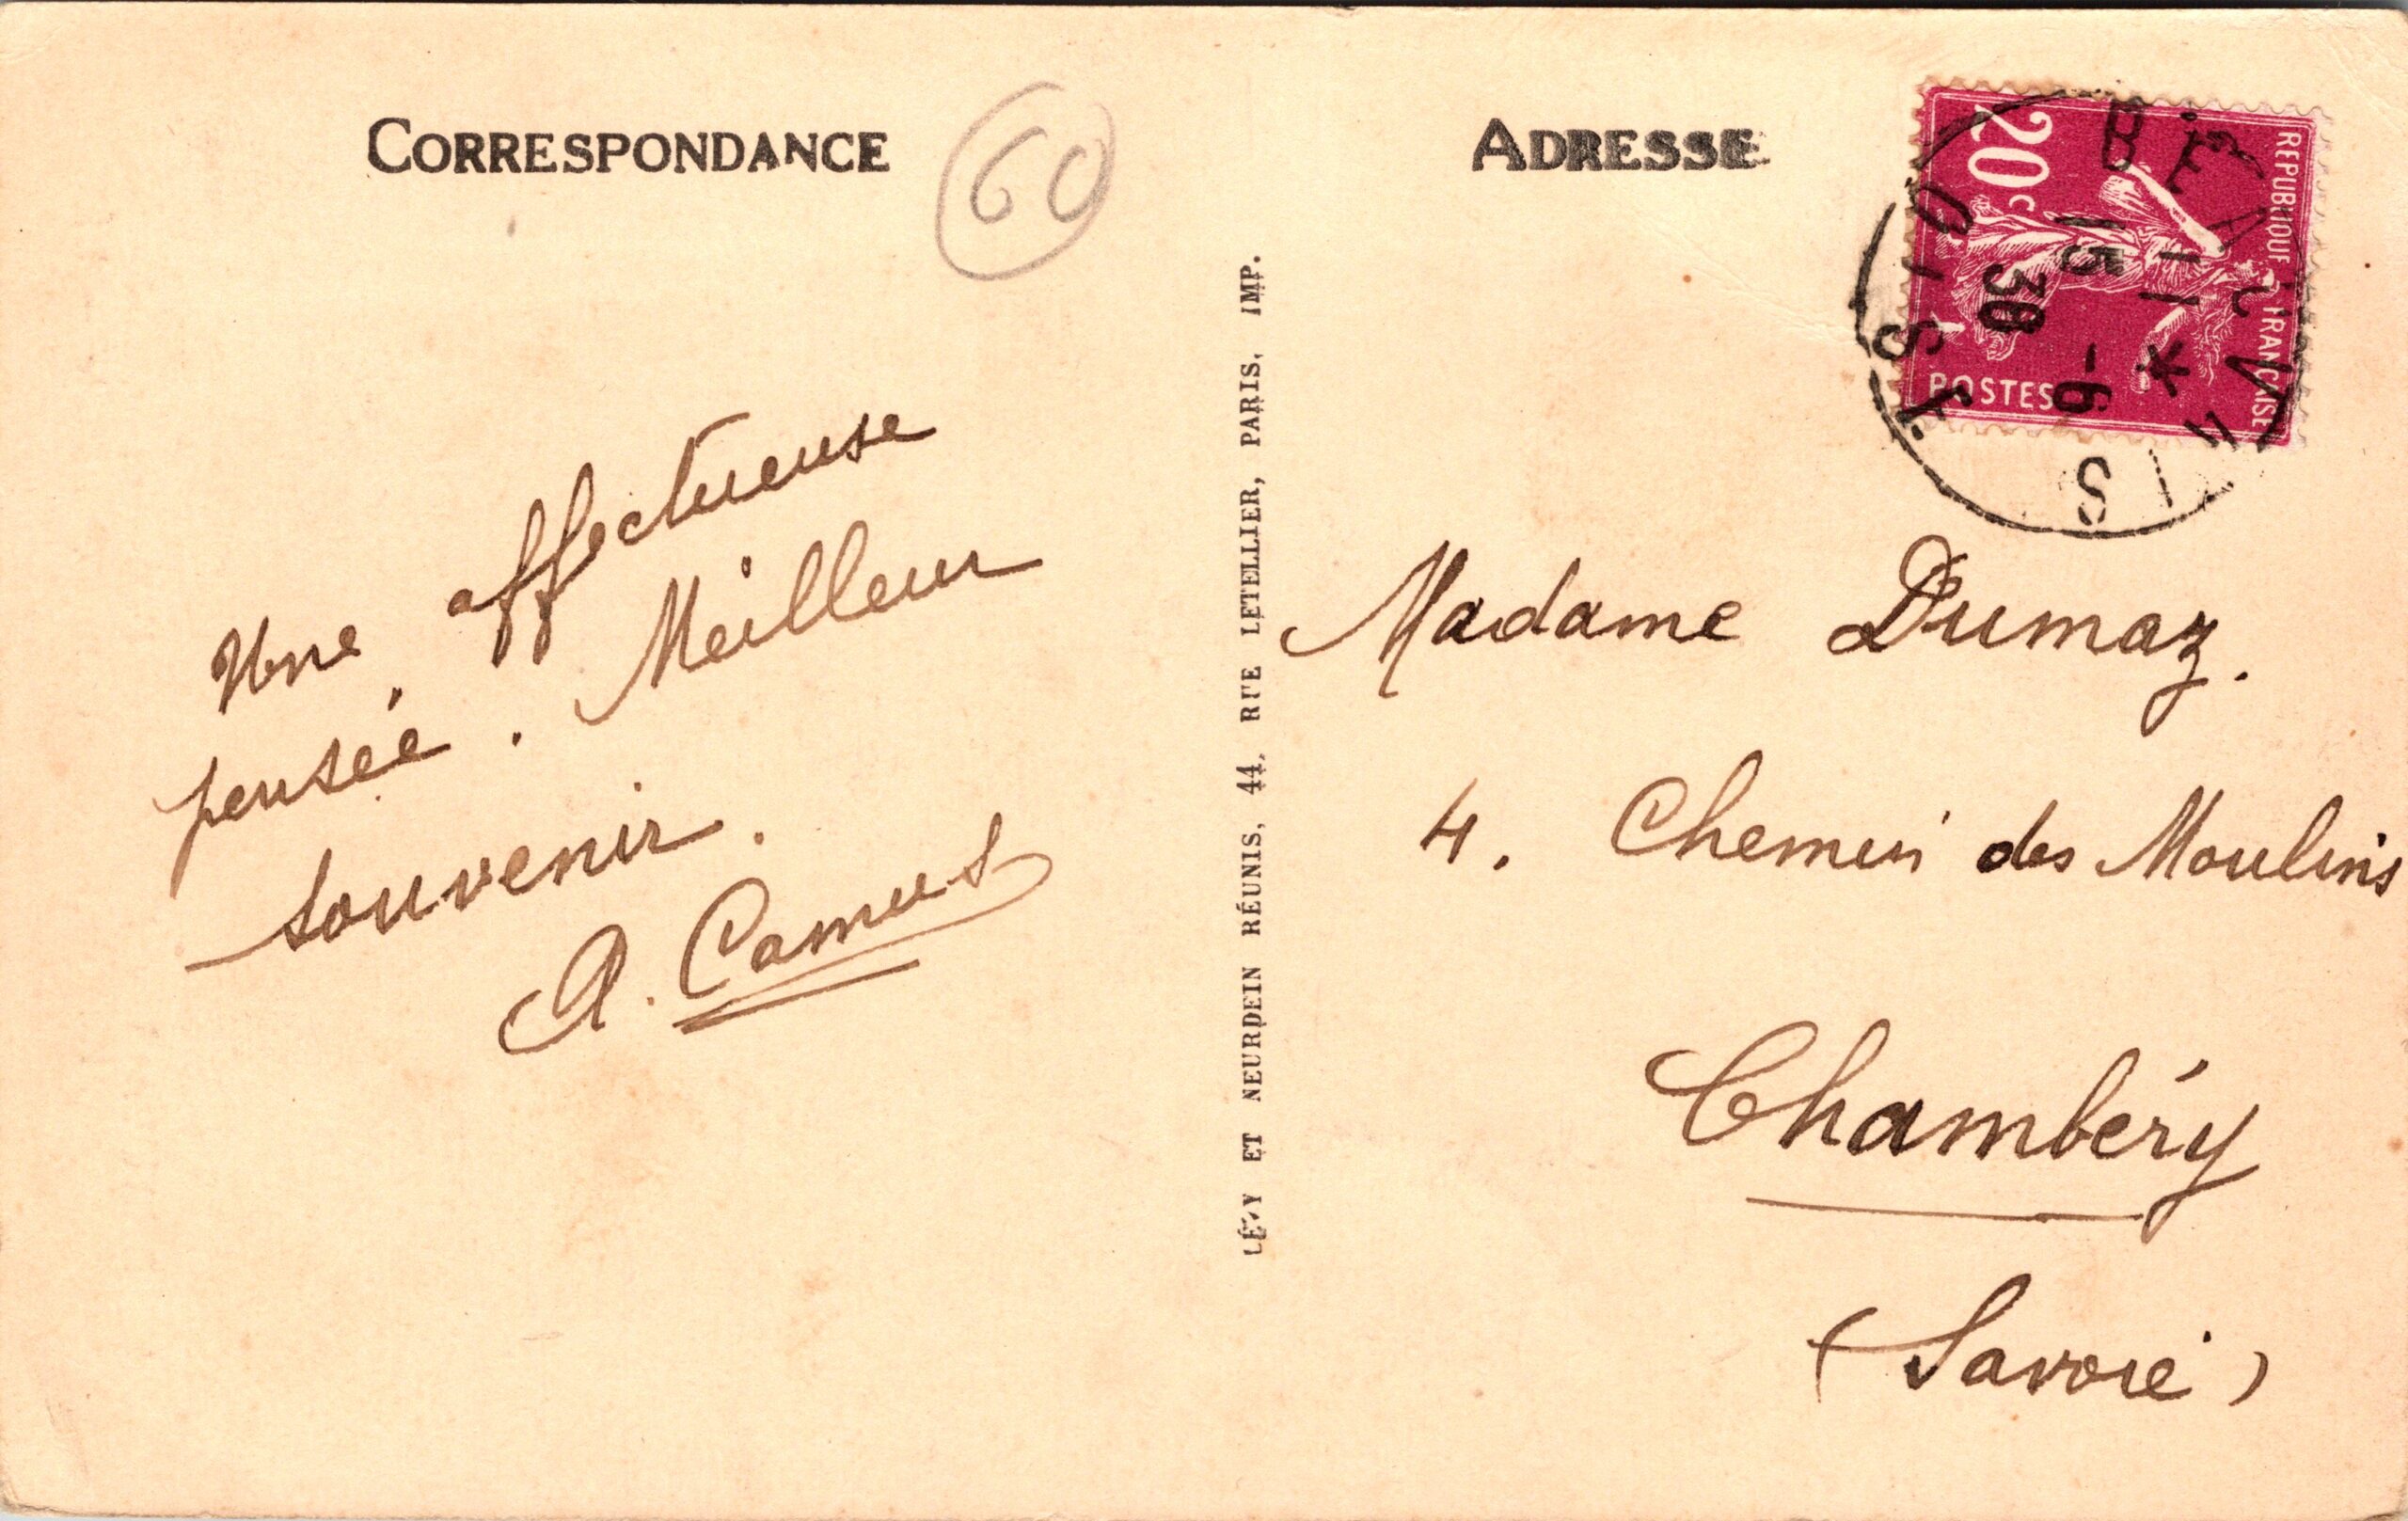 CORRESPONDANCE
60
Une affectueuse
pensée. Meilleur
souvenir.
A. Camus
LÉVY ET NEURDEIN RÉUNIS, 44, RUE LETELLIER, PARIS, IMP.
ADRESSE
REPUBLIQUE FRANÇAISE
20c
POSTES
BEAUVAIS
OISE
11 *
15 -6
30
Madame Dumaz.
4. Chemin des Moulins
Chambéry
(Savoie)